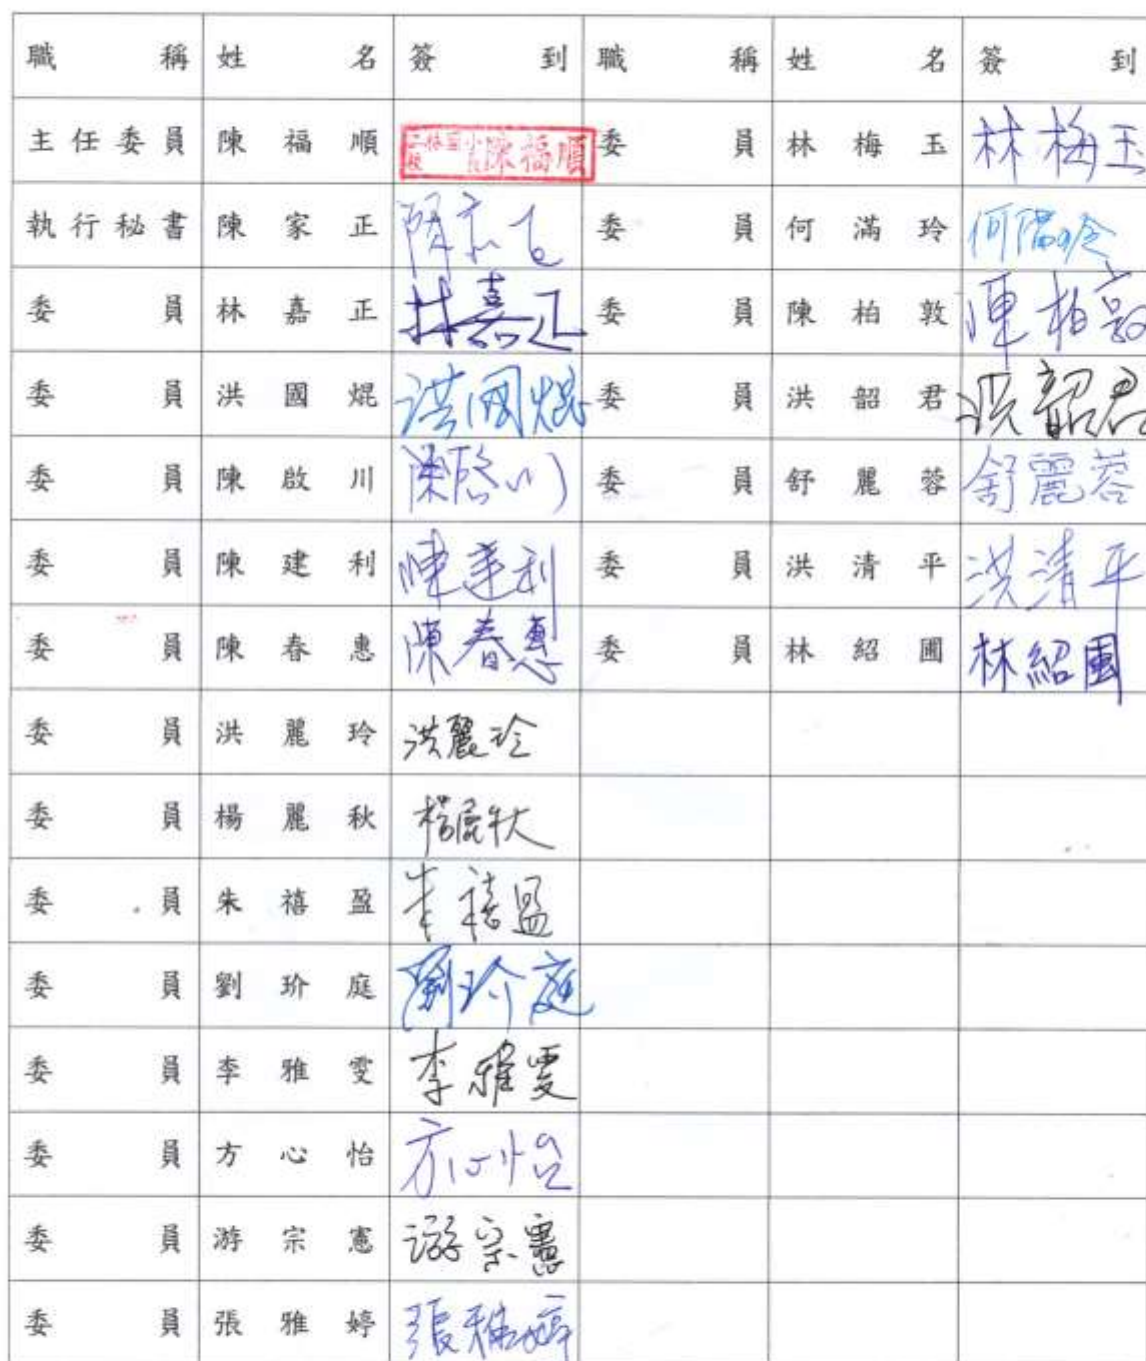 職稱 姓名 簽到 職稱 姓名 簽到
主任委員 陳福順 陳福順 委員 林梅玉 林梅玉
執行秘書 陳家正 陳家正 委員 何滿玲 何滿玲
委員 林嘉正 林嘉正 委員 陳柏敦 陳柏敦
委員 洪國焜 洪國焜 委員 洪韶君 洪韶君
委員 陳啟川 陳啟川 委員 舒麗蓉 舒麗蓉
委員 陳建利 陳建利 委員 洪清平 洪清平
委員 陳春惠 陳春惠 委員 林紹圃 林紹圃
委員 洪麗玲 洪麗玲
委員 楊麗秋 楊麗秋
委員 朱禧盈 朱禧盈
委員 劉玠庭 劉玠庭
委員 李雅雯 李雅雯
委員 方心怡 方心怡
委員 游宗憲 游宗憲
委員 張雅婷 張雅婷